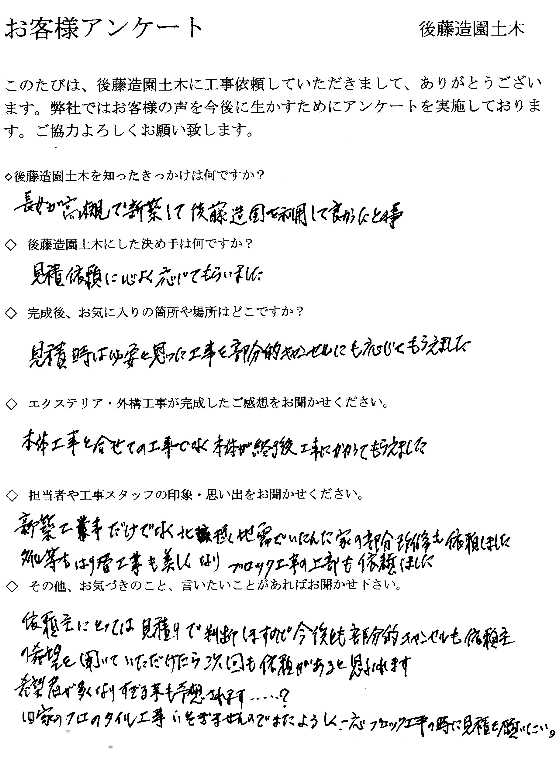 お客様アンケート
後藤造園土木
このたびは、後藤造園土木に工事依頼していただきまして、ありがとうござい
ます。弊社ではお客様の声を今後に生かすためにアンケートを実施しておりま
す。ご協力よろしくお願い致します。
◇後藤造園土木を知ったきっかけは何ですか？
長女が高槻で新築して後藤造園を利用して良かったと
◇ 後藤造園土木にした決め手は何ですか？
見積依頼に心よく応じてもらいました
◇ 完成後、お気に入りの箇所や場所はどこですか？
見積時は必要と思った工事を部分的キャンセルにも応じてもらえました
◇ エクステリア・外構工事が完成したご感想をお聞かせください。
本体工事と合せての工事でなく本体が終了後工事にかかってもらえました
◇ 担当者や工事スタッフの印象・思い出をお聞かせください。
新築工事だけでなく北 地震でいたんだ家の部分 修も依頼しました
はり替工事も美しくなりブロック工事の上部も依頼しました
◇ その他、お気づきのこと、言いたいことがあればお聞かせ下さい。
依頼主にとっては見積りで判断しますので今後とも部分的キャンセルも依頼主
の希望を聞いていただけたら次回も依頼があると思われます
希望者が多くなりすぎる事も予想されます……？
旧家のフロのタイル工事いそぎませんのでまたよろしく 応ブロック工事の時に見積を願いたい。